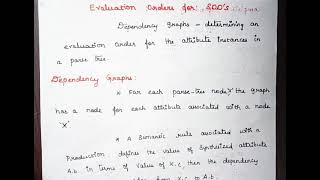 Evaluation Orders for SDD's
Dependency Graphs - determining an
evaluation order for the attribute instances in
a parse tree.
Dependency Graphs:
* For each parse-tree node, the graph
has a node for each attribute asociated with a node
'X'.
* A Semantic rule asociated with a
Production defines the value of Synthesized attribute
A.b. in terms of value of X.c, then the dependency
from X.c to A.b.